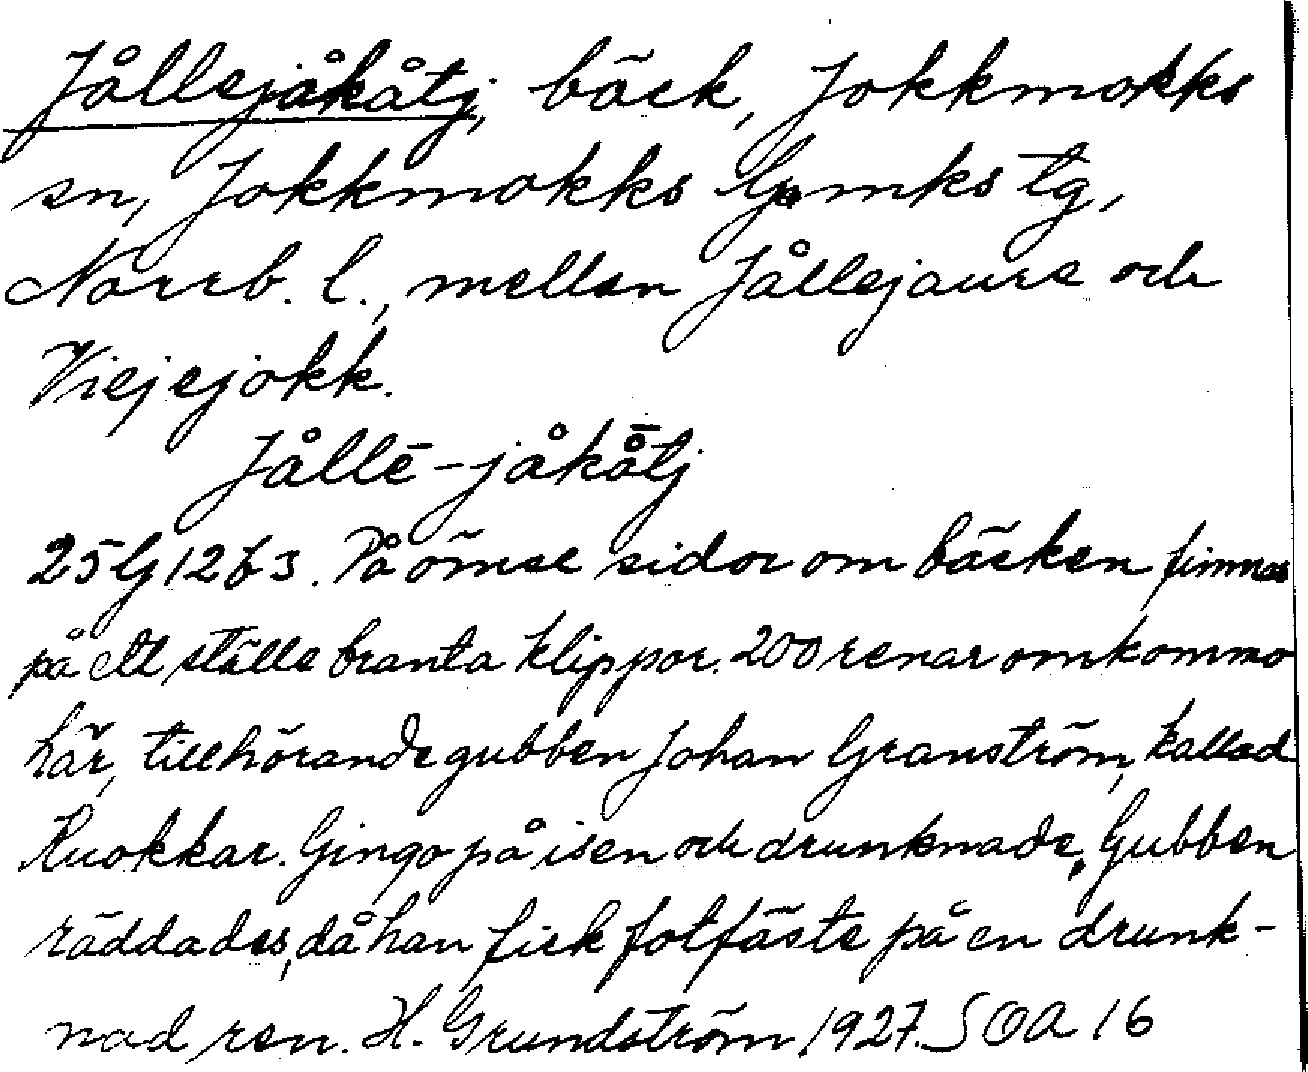 Jållejåkåtj, bäck, Jokkmokks
sn, Jokkmokks lpmks tg,
Norrb. l., mellan Jållejaure och
Viejejokk.
Jållē-jåkå̄tj
25G 12 f 3. På ömse sidor om bäcken finnas
på ett ställe branta klippor. 200 renar omkommo
här, tillhörande gubben Johan Granström, kallad
Ruokkar. Gingo på isen och drunknade. Gubben
räddades, då han fick fotfäste på en drunk-
nad ren. H. Grundström 1927. SOA 16